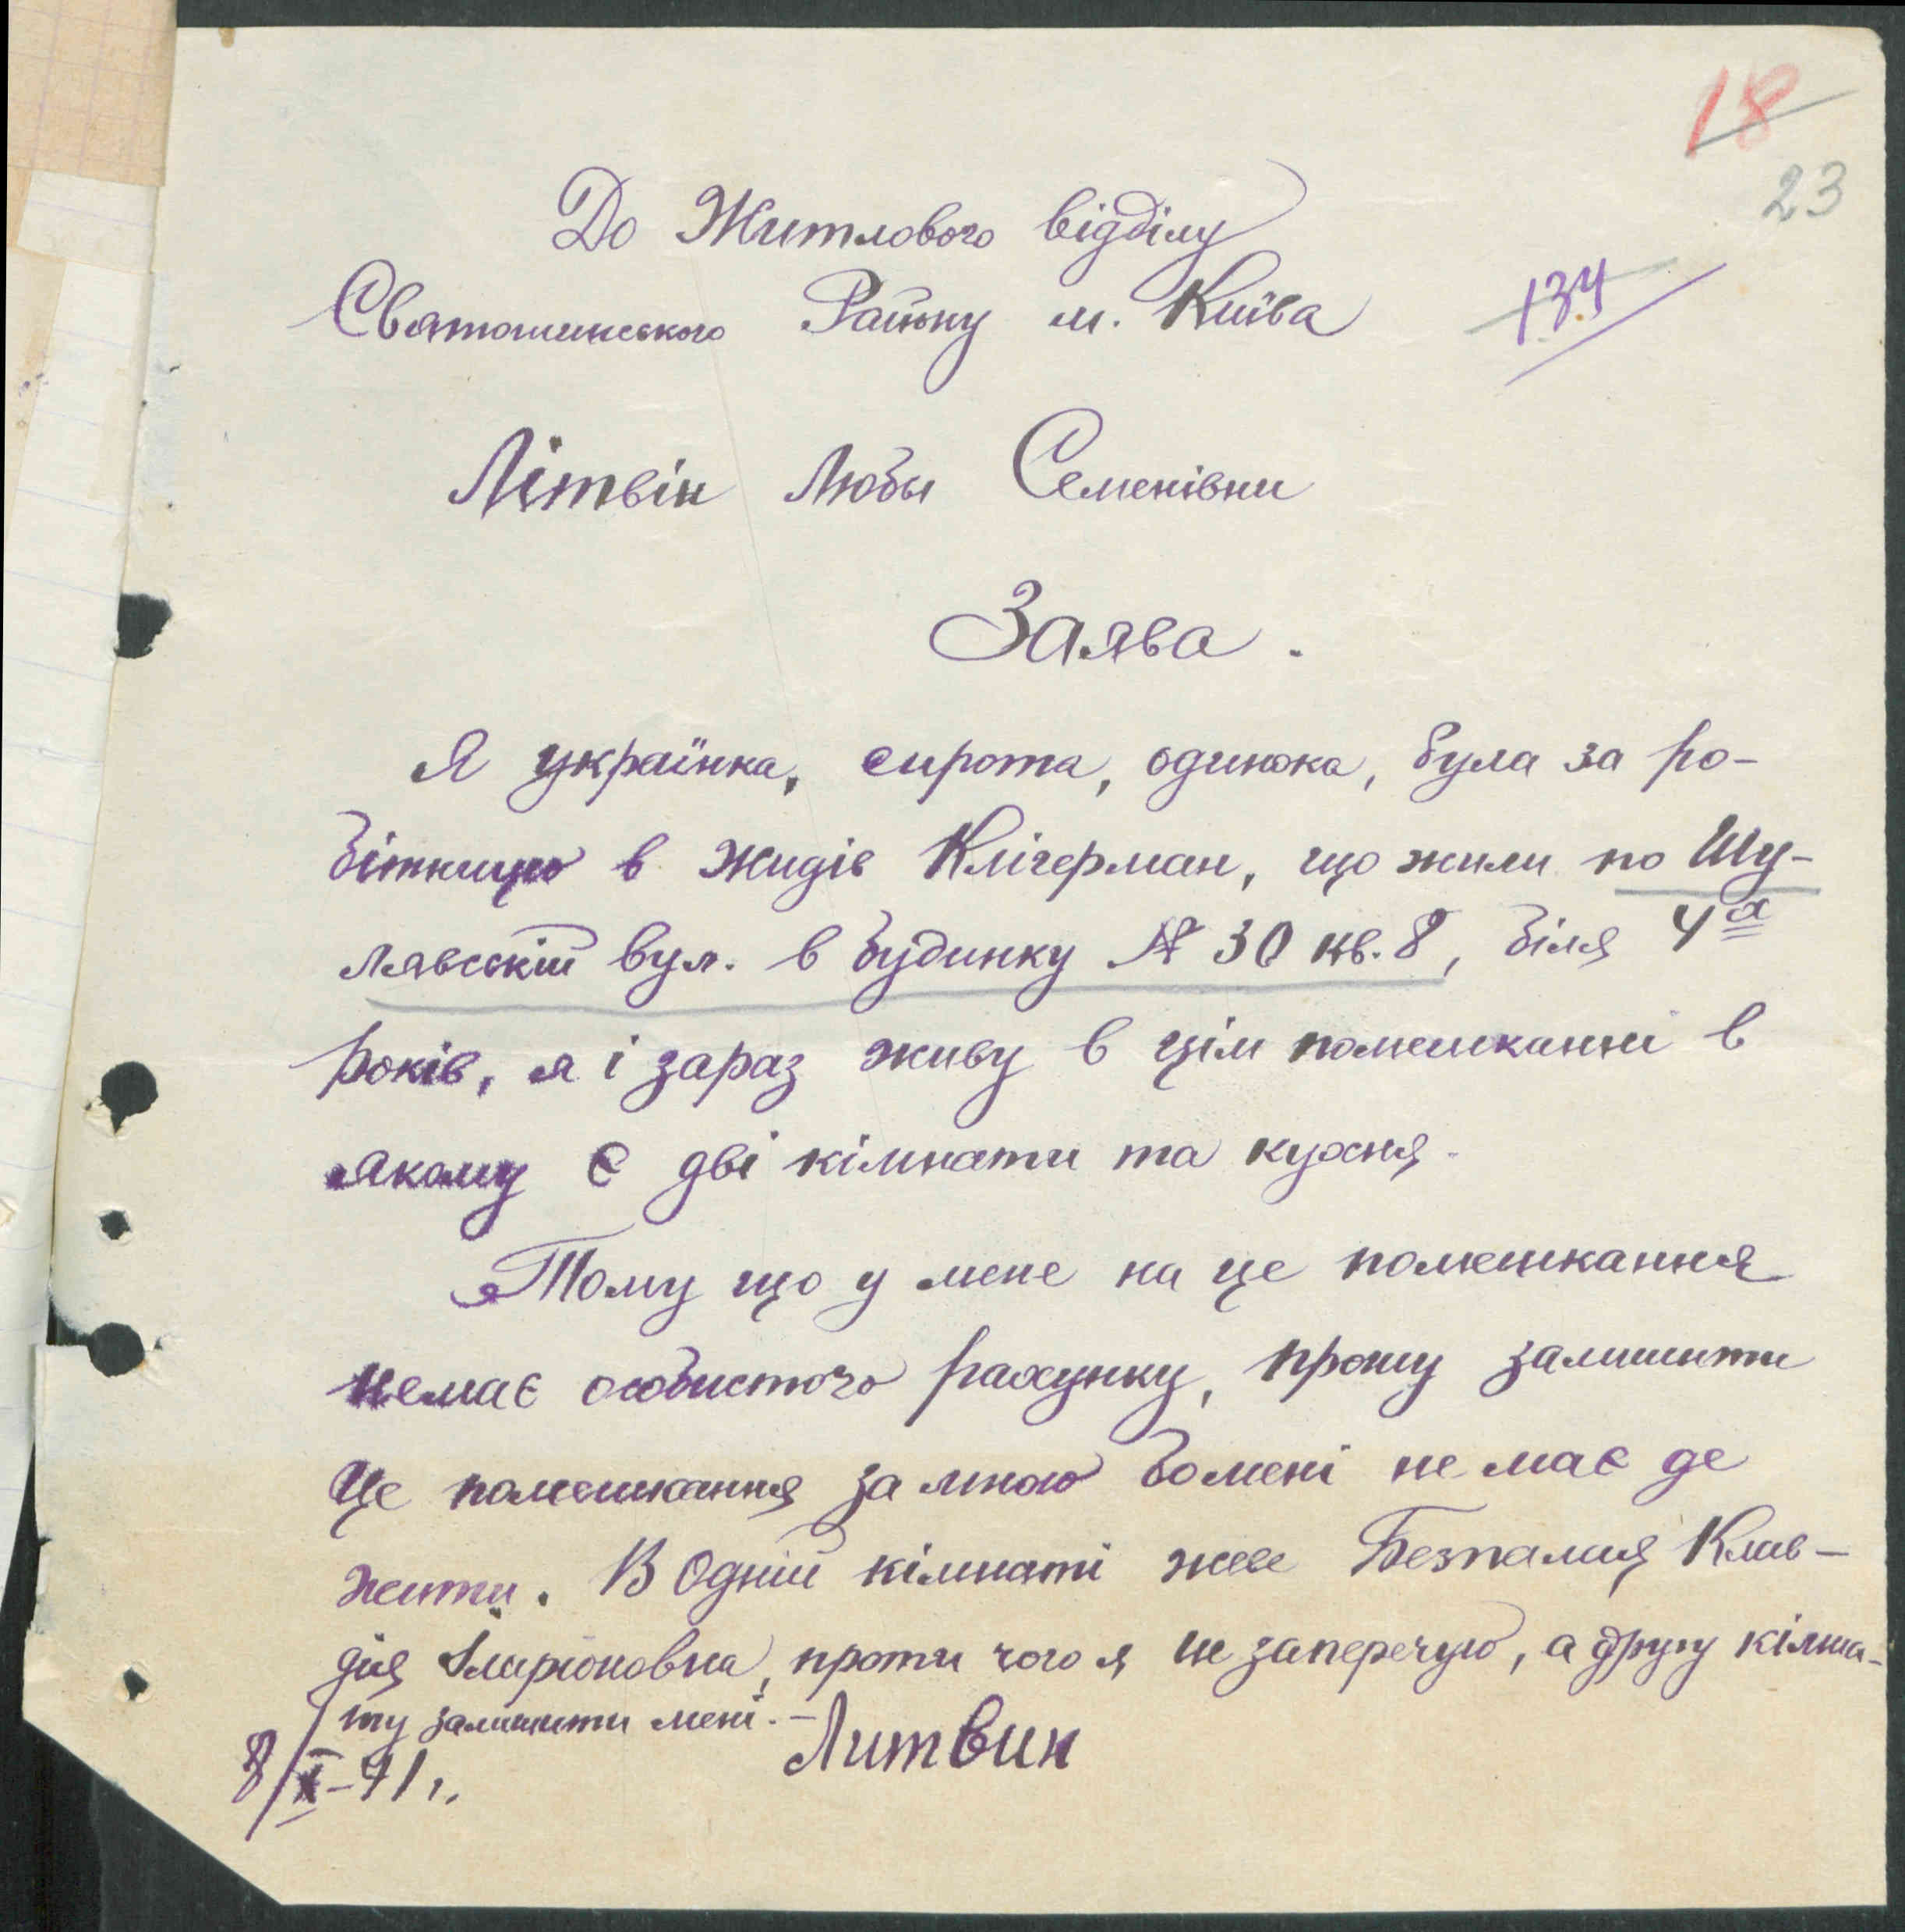 18
23
До Житлового відділу
Святошинського Району м. Київа
134
Літвін Любы Семенівни
Заява.
Я українка, сирота, одинока, була за ро-
бітницю в жидів Клічерман, що жили по Шу-
лявській вул. в будинку № 30 кв. 8, біля 4х
років, я і зараз живу в цім помешканні в
якому є дві кімнати та кухня.
Тому що у мене на це помешкання
немає особистого рахунку, прошу залишити
це помешкання за мною бо мені не має де
жити. В одній кімнаті живе Безпалая Клав-
дія Іларіоновна, проти чого я не заперечую, а другу кімна-
ту залишити мені. -
Литвин
8/X-41 г.